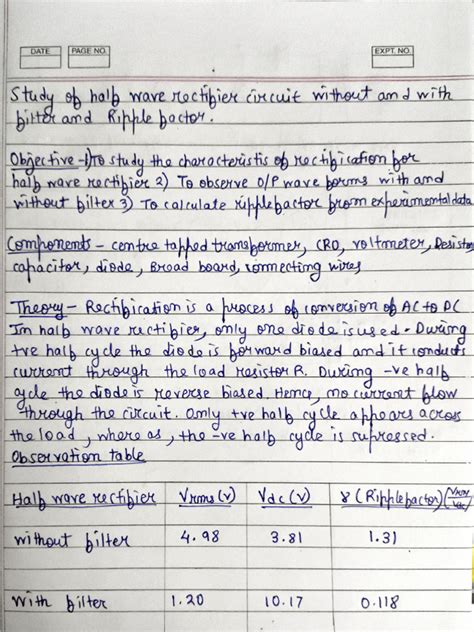 DATE PAGE NO. EXPT. NO.
Study of half wave rectifier circuit without and with
filter and Ripple factor.
Objective - 1) To study the characteristis of rectification for
half wave rectifier 2) To observe O/P wave forms with and
without filter 3) To calculate ripple factor from experimental data
Components - centre tapped transformer, CRO, voltmeter, Resistor
capacitor, diode, Broad board, connecting wires
Theory - Rectification is a process of conversion of AC to DC
In half wave rectifier, only one diode is used. During
+ve half cycle the diode is forward biased and it conducts
current through the load resistor R. During -ve half
cycle the diode is reverse biased. Hence, no current flow
through the circuit. Only +ve half cycle appears across
the load, where as, the -ve half cycle is supressed.
Observation table
Half wave rectifier Vrms (v) Vdc (v) γ (Ripple factor) (Vrms/Vdc)
without filter 4.98 3.81 1.31
With filter 1.20 10.17 0.118